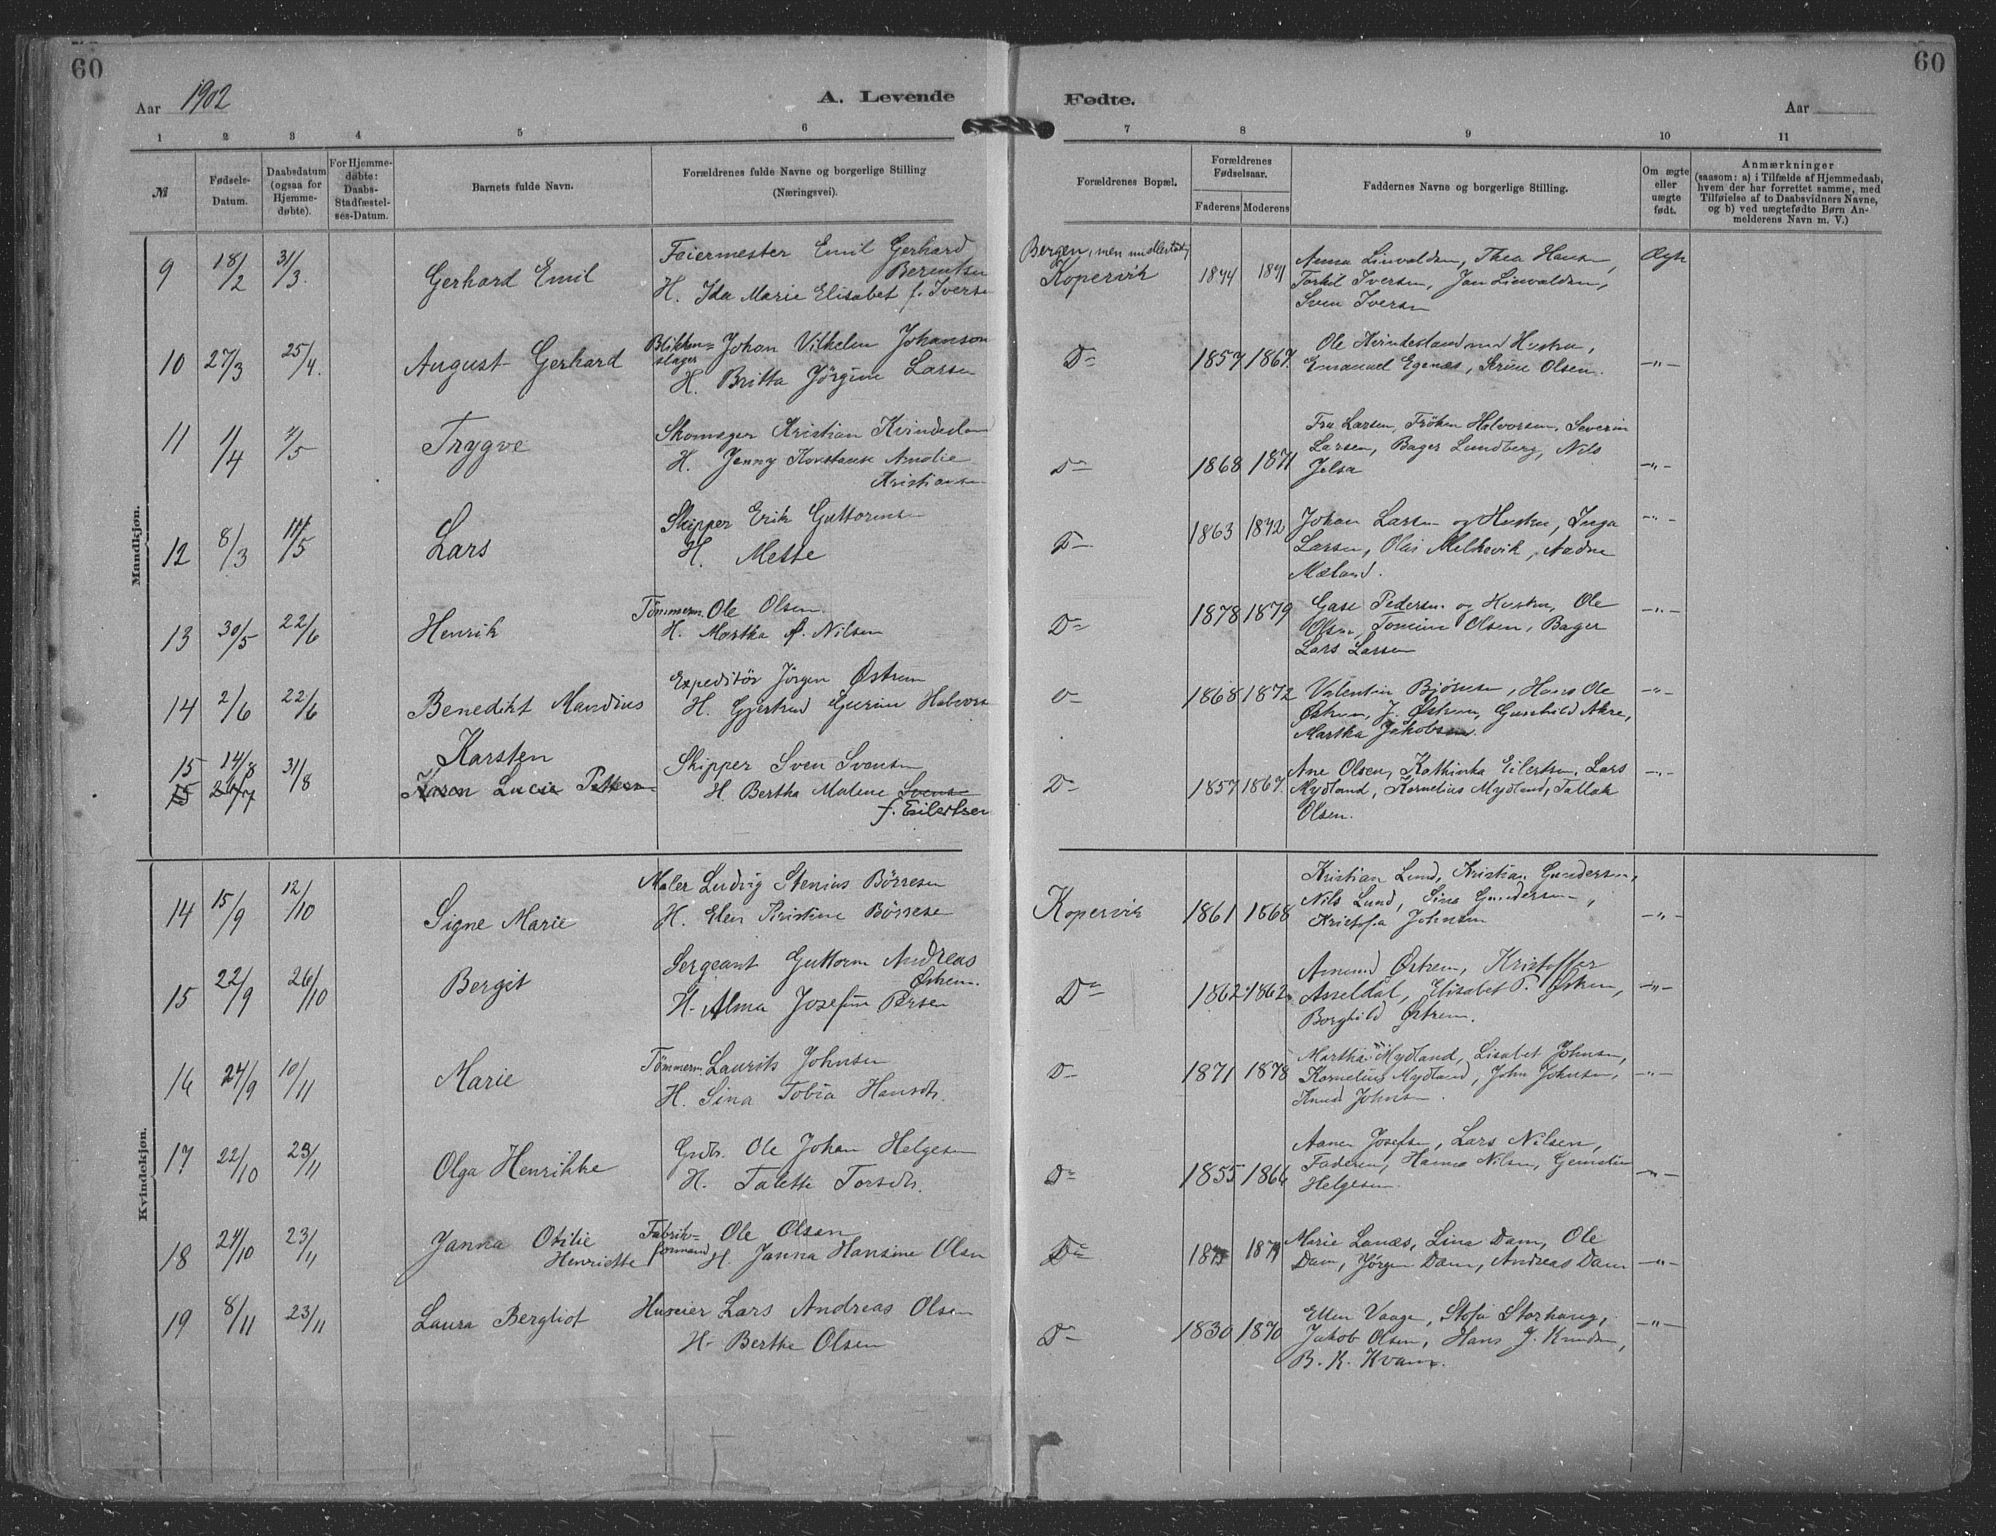 60
60
Aar 1902
A. Levende Fødte.
Aar
1 2 3 4 5 6 7 8 9 10 11
№
Fødsels-
Datum.
Daabsdatum
(ogsaa for
Hjemme-
døbte).
For Hjemme-
døbte:
Daabs-
Stadfæstel-
ses-Datum.
Barnets fulde Navn.
Forældrenes fulde Navne og borgerlige Stilling
(Næringsvei).
Forældrenes Bopæl.
Forældrenes
Fødselsaar.
Faderens Moderens
Faddernes Navne og borgerlige Stilling.
Om ægte
eller
uægte
født.
Anmærkninger
(saasom: a) i Tilfælde af Hjemmedaab,
hvem der har forrettet samme, med
Tilføielse af to Daabsvidners Navne,
og b) ved uægtefødte Børn An-
melderens Navn m. V.)
Mandkjøn.
9 18/2 31/3. Gerhard Emil
Feiermester Emil Gerhard
Berentsen
H. Ida Marie Elisabet f. Iversen
Bergen, men midlertidig
Kopervik
1874 1871
Anna Linvaldsen, Thea Hansen,
Torkil Iversen, Jan Linvaldsen,
Sven Iversen
Ægte
10 27/3 25/4. August Gerhard
Blikken-
slager Johan Vilhelm Johanson
H. Britta Jörgine Larsen
Do
1857 1867.
Ole Kvindesland med Hustru,
Emanuel Egenæs, Serine Olsen.
—"—
11 1/4 4/5 Trygve
Skomager Kristian Kvindesland
H. Jenny Konstanse Amalie
Kristiansen
Do
1868 1871
Fru Larsen, Fröken Halvorsen, Severin
Larsen, Bager Lundberg, Nils
Jelsa
—"—
12 8/3 11/5 Lars
Skipper Erik Guttormsen
H. Mette
Do
1863 1872
Johan Larsen og Hustru, Inga
Larsen, Olai Melkevik, Aadne
Mæland.
—"—
13 30/5 22/6 Henrik
Tömmerm. Ole Olsen.
H. Martha f. Nilsen
Do
1878 1879
Pedersen og Hustru, Ole
Olsen, Tomine Olsen, Bager
Lars Larsen
—"—
14 2/6 22/6 Benedikt Mandius
Expeditör Jörgen Østrem
H. Gjertrud Gurine Halvorsen
Do
1868 1872
Valentin Björnsen, Hans Ole
Østrem, J. Østrem, Gunhild Akre,
Martha Jakobsen.
—"—
15 14/8 31/8 Karsten
15 26/7 Karen Lucie Pettersen
Skipper Sven Svensen
H. Bertha Malene Svens
f. Eilertsen
Do
1857 1867.
Ane Olsen, Kathinka Eilertsen, Lars
Mydland, Kornelius Mydland, Tallak
Olsen.
—"—
Kvindekjøn.
14 15/9 12/10 Signe Marie
Maler Ludvig Stenius Börresen
H. Elen Kristine Börresen
Kopervik
1861 1868
Kristian Lund, Kristian Gundersen,
Nils Lund, Sina Gundersen,
Kristofa Johnsen
—"—
15 22/9 26/10 Bergit
Sergeant Guttorm Andreas
Østrem.
H. Alma Josefine Persen
Do
1862 1862
Amund Østrem, Kristoffer
Asseldal, Elisabet P. Østrem,
Borghild Østrem.
—"—
16 24/9 10/11 Marie
Tömmerm. Laurits Johnsen
H. Sina Tobia Hansdtr.
Do
1871 1878
Martha Mydland, Lisabet Johnsen,
Kornelius Mydland, John Johnsen,
Knud Johnsen.
—"—
17 22/10 23/11 Olga Henrikke
Gaardbr. Ole Johan Helgesen
H. Talette Torsdtr.
Do
1855 1866
Josefsen, Lars Nilsen,
Faderen, Hanna Nilsen,
Helgesen
—"—
18 24/10 23/11 Janna Otilie
Henriette
Fabrik-
formand Ole Olsen
H. Janna Hansine Olsen
Do
1875 1879
Marie Lanæs, Lina Dam, Ole
Dam, Jörgen Dam, Andreas Dam
—"—
19 8/11 23/11 Laura Bergliot
Huseier Lars Andreas Olsen
H. Berthe Olsen
Do
1830 1870
Ellen Vaage, Stofa Storhaug,
Jakob Olsen, Hans J. Knudsen,
B. K. Kvam.
—"—